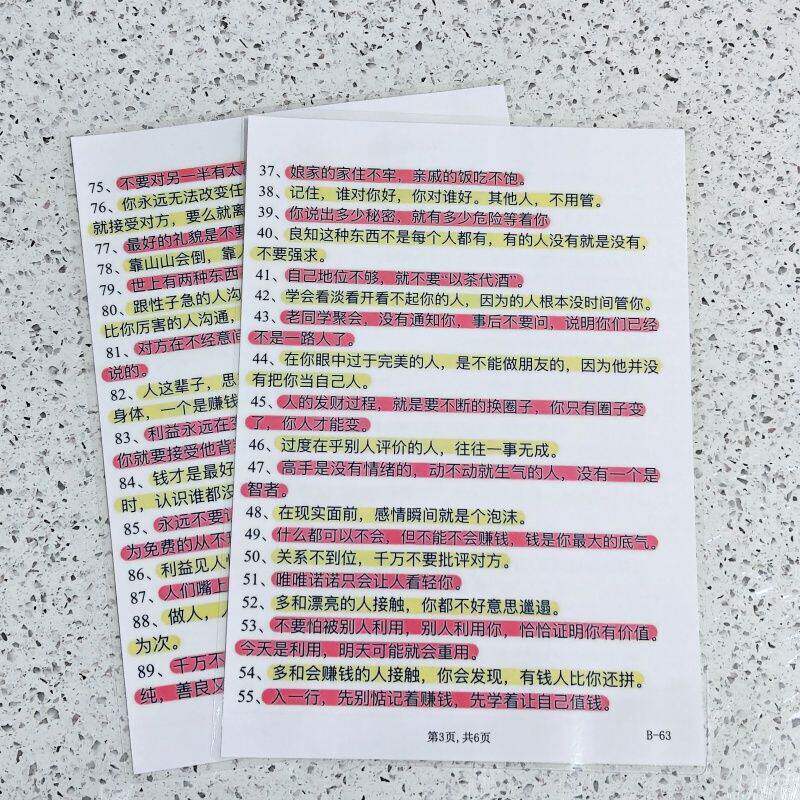 75、不要对另一半有太
76、你永远无法改变任
就接受对方，要么就离
77、最好的礼貌是不要
78、靠山山会倒，靠
79、世上有两种东西
80、跟性子急的人沟
比你厉害的人沟通，
81、对方在不经意间
说的。
82、人这辈子，思
身体，一个是赚钱
83、利益永远在
你就要接受他背
84、钱才是最好
时，认识谁都没
85、永远不要
为免费的从不
86、利益见人
87、人们嘴上
88、做人，
为次。
89、千万不
纯，善良
37、娘家的家住不牢，亲戚的饭吃不饱。
38、记住，谁对你好，你对谁好。其他人，不用管。
39、你说出多少秘密，就有多少危险等着你
40、良知这种东西不是每个人都有，有的人没有就是没有，
不要强求。
41、自己地位不够，就不要“以茶代酒”。
42、学会看淡看开看不起你的人，因为的人根本没时间管你。
43、老同学聚会，没有通知你，事后不要问，说明你们已经
不是一路人了。
44、在你眼中过于完美的人，是不能做朋友的，因为他并没
有把你当自己人。
45、人的发财过程，就是要不断的换圈子，你只有圈子变
了，你人才能变。
46、过度在乎别人评价的人，往往一事无成。
47、高手是没有情绪的，动不动就生气的人，没有一个是
智者。
48、在现实面前，感情瞬间就是个泡沫。
49、什么都可以不会，但不能不会赚钱，钱是你最大的底气。
50、关系不到位，千万不要批评对方。
51、唯唯诺诺只会让人看轻你。
52、多和漂亮的人接触，你都不好意思邋遢。
53、不要怕被别人利用，别人利用你，恰恰证明你有价值。
今天是利用，明天可能就会重用。
54、多和会赚钱的人接触，你会发现，有钱人比你还拼。
55、入一行，先别惦记着赚钱，先学着让自己值钱。
第3页,共6页
B-63